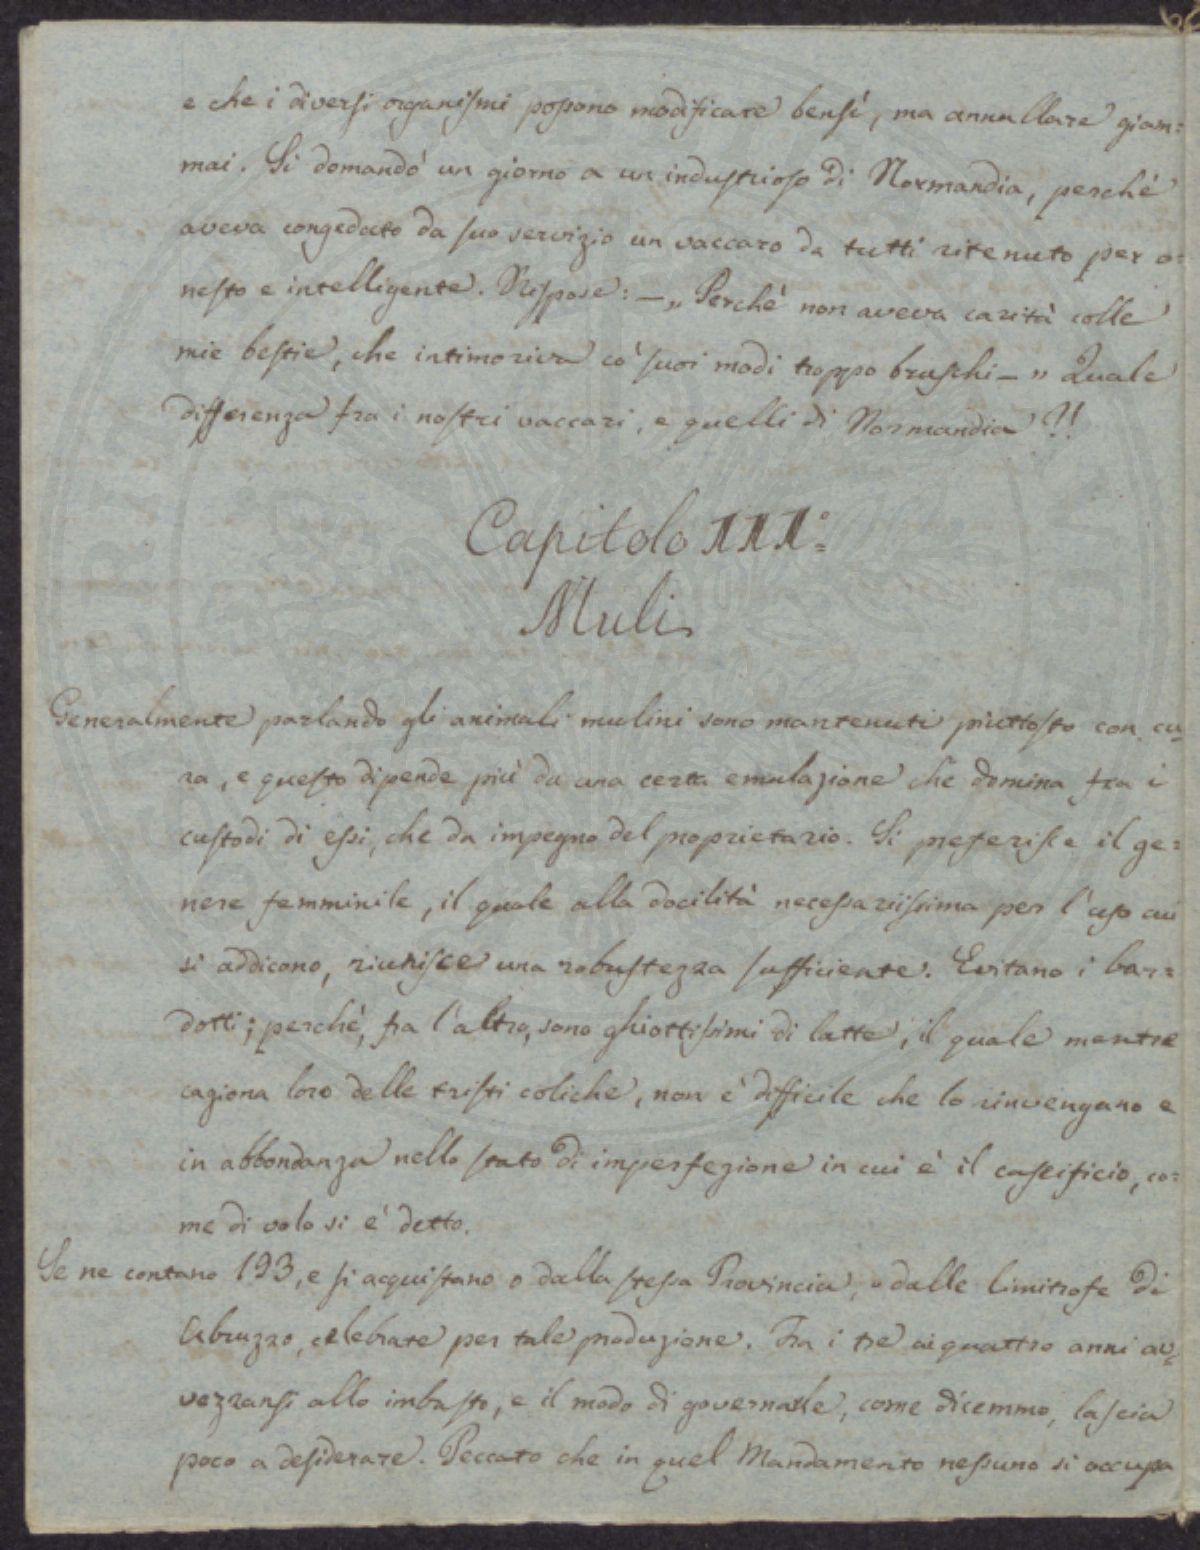 e che i diversi organismi possono modificare bensì, ma annullare giam=
mai. Si domandò un giorno a un industrioso di Normandia, perchè
aveva congedato da suo servizio un vaccaro da tutti ritenuto per o=
nesto e intelligente. Rispose: — „ Perchè non aveva carità colle
mie bestie, che intimoriva co' suoi modi troppo bruschi — „ Quale
differenza fra i nostri vaccari, e quelli di Normandia?!!
Capitolo III.°
Muli
Generalmente parlando gli animali mulini sono mantenuti piuttosto con cu=
ra, e questo dipende più da una certa emulazione che domina fra i
custodi di essi, che da impegno del proprietario. Si preferisce il ge=
nere femminile, il quale alla docilità necessariissima per l'uso cui
si addicono, riunisce una robustezza sufficiente. Evitano i bar=
dotti; perchè, fra l'altro, sono ghiottissimi di latte, il quale mentre
cagiona loro delle tristi coliche, non è difficile che lo rinvengano e
in abbondanza nello stato di imperfezione in cui è il caseificio, co=
me di volo si è detto.
Se ne contano 193, e si acquistano o dalla stessa Provincia, o dalle limitrofe di
Abruzzo, celebrate per tale produzione. Fra i tre ai quattro anni av=
vezzansi allo imbasto, e il modo di governarle, come dicemmo, lascia
poco a desiderare. Peccato che in quel Mandamento nessuno si occupa